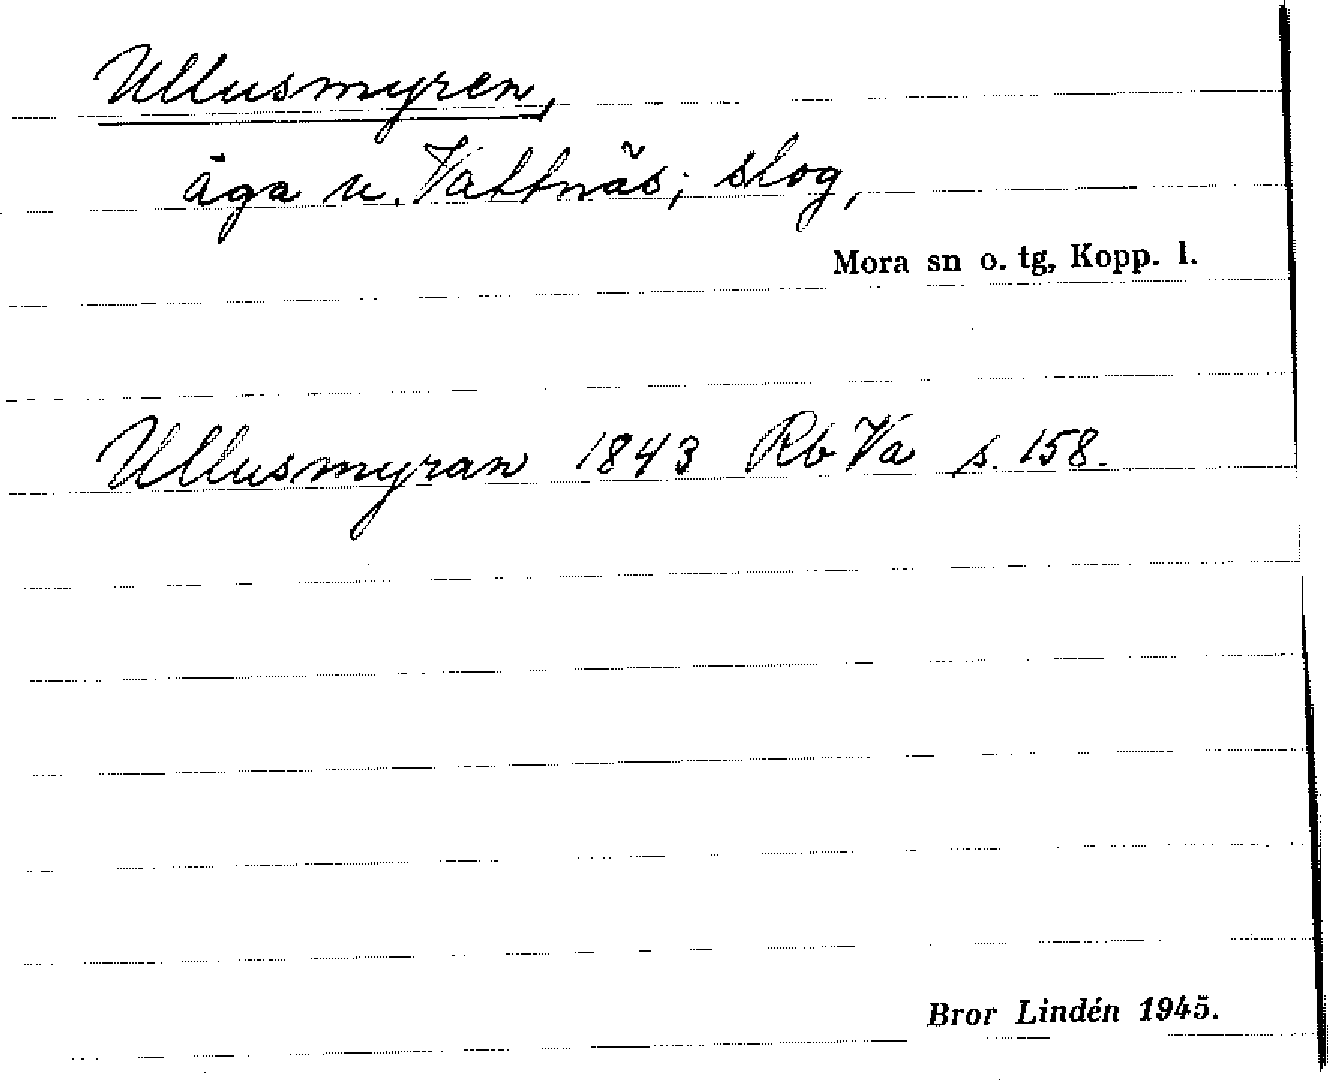 Ullusmyren,
äga u. Vattnäs; slog,
Mora sn o. tg, Kopp. l.
Ullusmyran 1843 Rb Va s. 158.
Bror Lindén 1945.